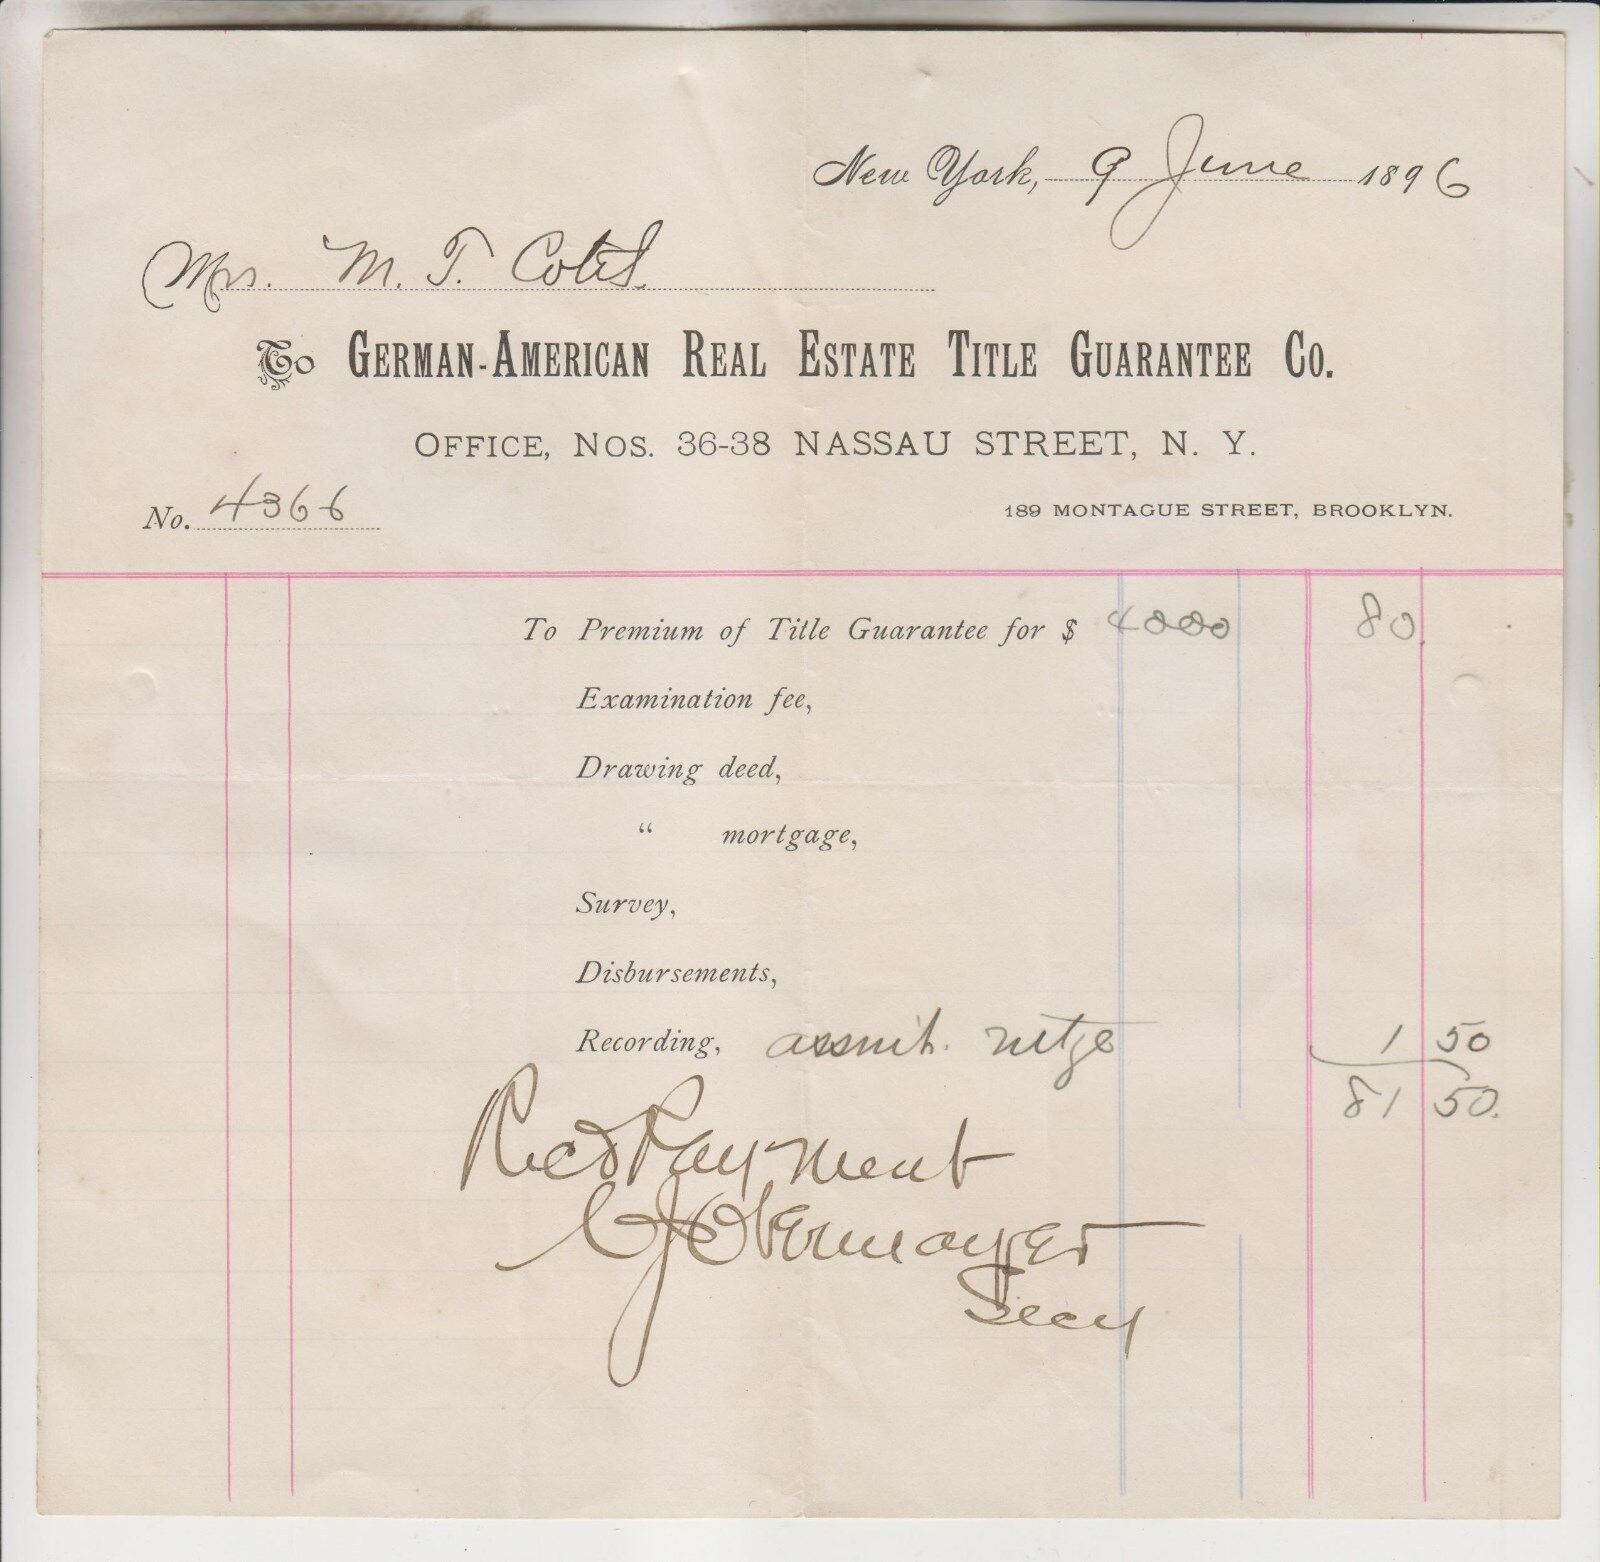 New York, 9 June 1896
Mrs. M. T.
To GERMAN-AMERICAN REAL ESTATE TITLE GUARANTEE CO.
OFFICE, NOS. 36-38 NASSAU STREET, N. Y.
No. 4366
189 MONTAGUE STREET, BROOKLYN.
To Premium of Title Guarantee for $ 4000 80
Examination fee,
Drawing deed,
" mortgage,
Survey,
Disbursements,
Recording, 1 50
81 50.
Recd Payment
C J Obermayer
Secy